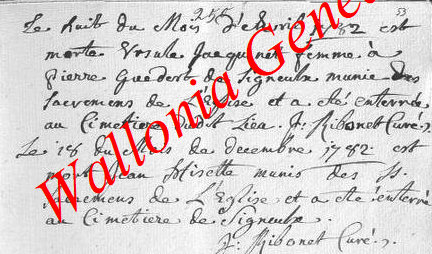 255 53
Le huit du Mois d'Avril 1782 est
morte Ursule Jacquinet femme à
pierre Guedert de Signeulx munie des
sacremens de L'Eglise et a eté enterrée
au Cimetiere dudit Lieu. J: Ribonet Curé.
Le 18 du Mois de decembre 1782. est
mort Jean Misette munis des SS.
sacremens de L'Eglise et a eté enterré
au Cimetiere de Signeulx.
J: Ribonet Curé.
Wallonia Gene